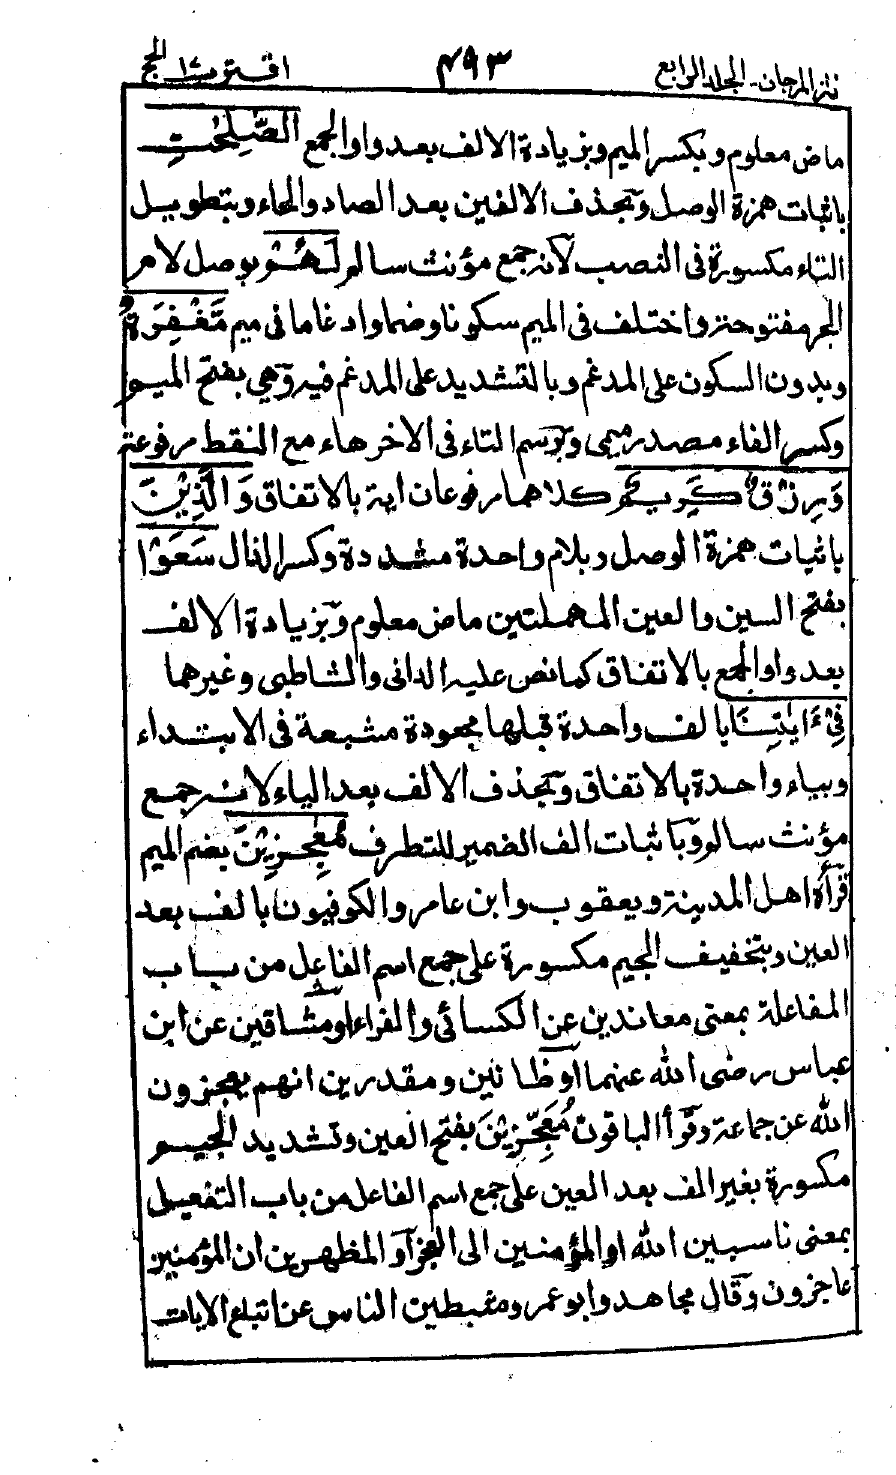 نثر المرجان - الجلد الرابع ٤٩٣ اقترب ١٧ الحج
ماض معلوم وبكسر الميم وبزيادة الالف بعد واو الجمع الصّٰلِحٰتِ
باثبات همزة الوصل وبحذف الالفين بعد الصاد والحاء وبتطويل
التاء مكسورة فى النصب لانه جمع مؤنث سالم لَهُمْ بوصل لام
الجر مفتوحة واختلف فى الميم سكونا وضما وادغاما فى ميم مَّغْفِرَةٌ
وبدون السكون على المدغم وبالتشديد على المدغم فيه وهى بفتح الميم
وكسر الفاء مصدر ميمى وبرسم التاء فى الاخر هاء مع النقط مرفوعة
وَّرِزْقٌ كَرِيمٌ كلاهما مرفوعان اية بالاتفاق وَالَّذِيْنَ
باثبات همزة الوصل وبلام واحدة مشددة وكسر الذال سَعَوْا
بفتح السين والعين المهملتين ماض معلوم وبزيادة الالف
بعد واو الجمع بالاتفاق كما نص عليه الدانى والشاطبى وغيرهما
فِيْٓ ءَايٰتِنَا بالف واحدة قبلها مجعودة مشبعة فى الابتداء
وبياء واحدة بالاتفاق وبحذف الالف بعد الياء لانه جمع
مؤنث سالم وباثبات الف الضمير للتطرف مُعٰجِزِيْنَ بضم الميم
قرأه اهل المدينة ويعقوب وابن عامر والكوفيون بالف بعد
العين وبتخفيف الجيم مكسورة على جمع اسم الفاعل من باب
المفاعلة بمعنى معاندين عن الكسائى والفراء او مشاقين عن ابن
عباس رضى الله عنهما او ظانين ومقدرين انهم يعجزون
الله عن جماعة وقرأ الباقون مُعَجِّزِيْنَ بفتح العين وتشديد الجيم
مكسورة بغير الف بعد العين على جمع اسم الفاعل من باب التفعيل
بمعنى ناسبين الله او المؤمنين الى العجز او المظهرين ان المؤمنين
عاجزون وقال مجاهد وابو عمر ومثبطين الناس عن اتباع الايات